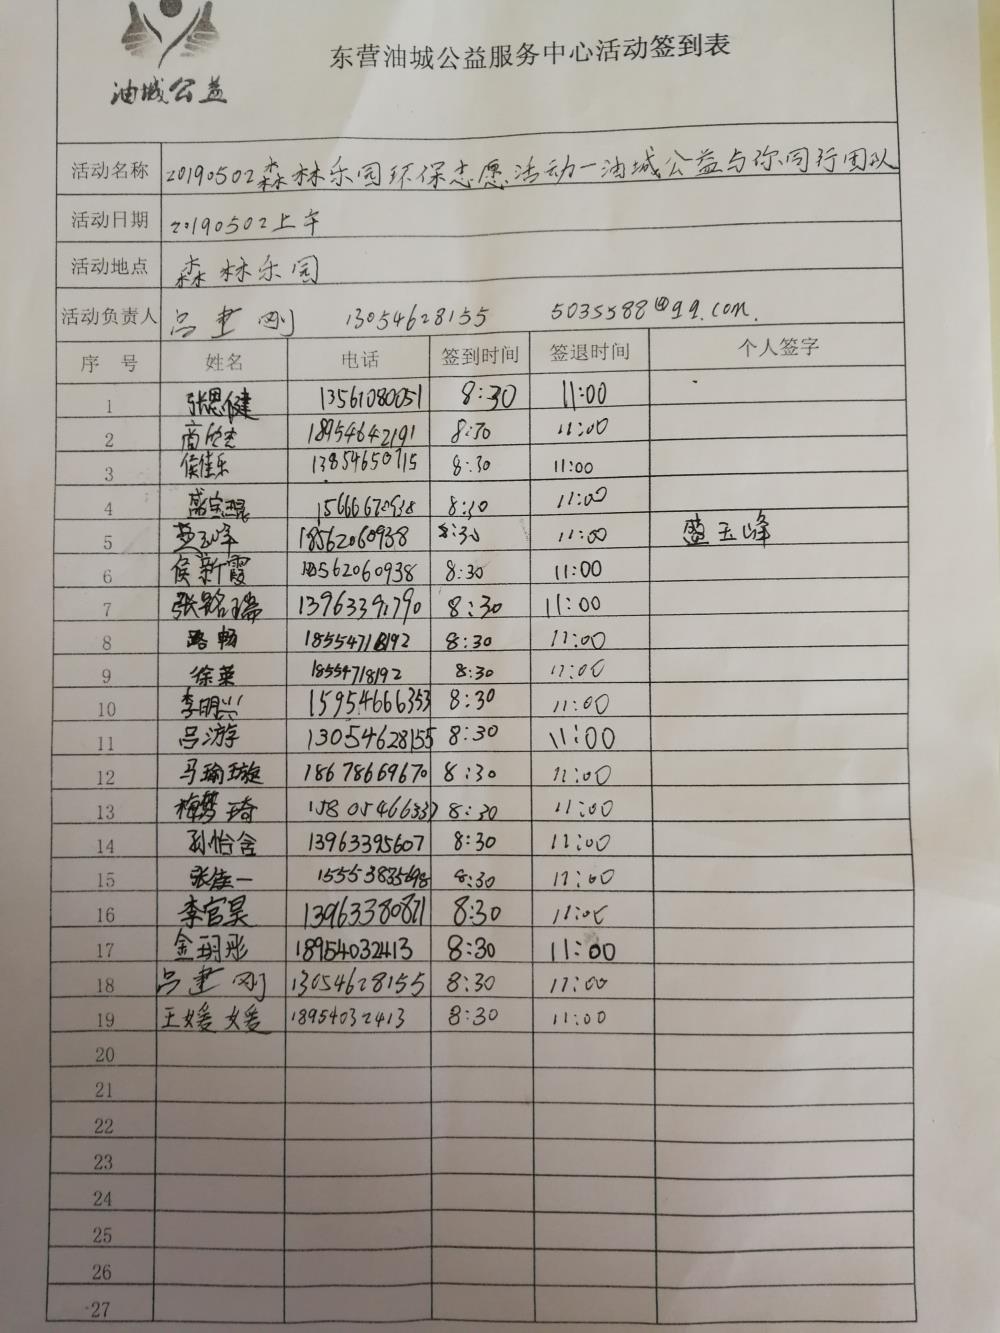 油城公益
东营油城公益服务中心活动签到表
活动名称 20190502森林乐园环保志愿活动—油城公益与你同行团队
活动日期 20190502上午
活动地点 森林乐园
活动负责人 吕建刚 13054628155 5035588@qq.com.
序号 姓名 电话 签到时间 签退时间 个人签字
1 张恩健 13561080051 8:30 11:00
2 商欣杰 18954642191 8:30 11:00
3 侯佳乐 13854650715 8:30 11:00
4 8:30 11:00
5 盛玉峰 18562060938 8:30 11:00 盛玉峰
6 侯新霞 18562060938 8:30 11:00
7 张铭瑞 13963391790 8:30 11:00
8 路畅 18554718192 8:30 11:00
9 徐莱 18554718192 8:30 11:00
10 李明兴 15954666353 8:30 11:00
11 吕游 13054628155 8:30 11:00
12 马瑜璇 18678669670 8:30 11:00
13 梅梦琦 15805466337 8:30 11:00
14 孙怡含 13963395607 8:30 11:00
15 张佳一 15553835698 8:30 11:00
16 李官昊 13963380871 8:30 11:00
17 金玥彤 18954032413 8:30 11:00
18 吕建刚 13054628155 8:30 11:00
19 王媛媛 18954032413 8:30 11:00
20
21
22
23
24
25
26
27